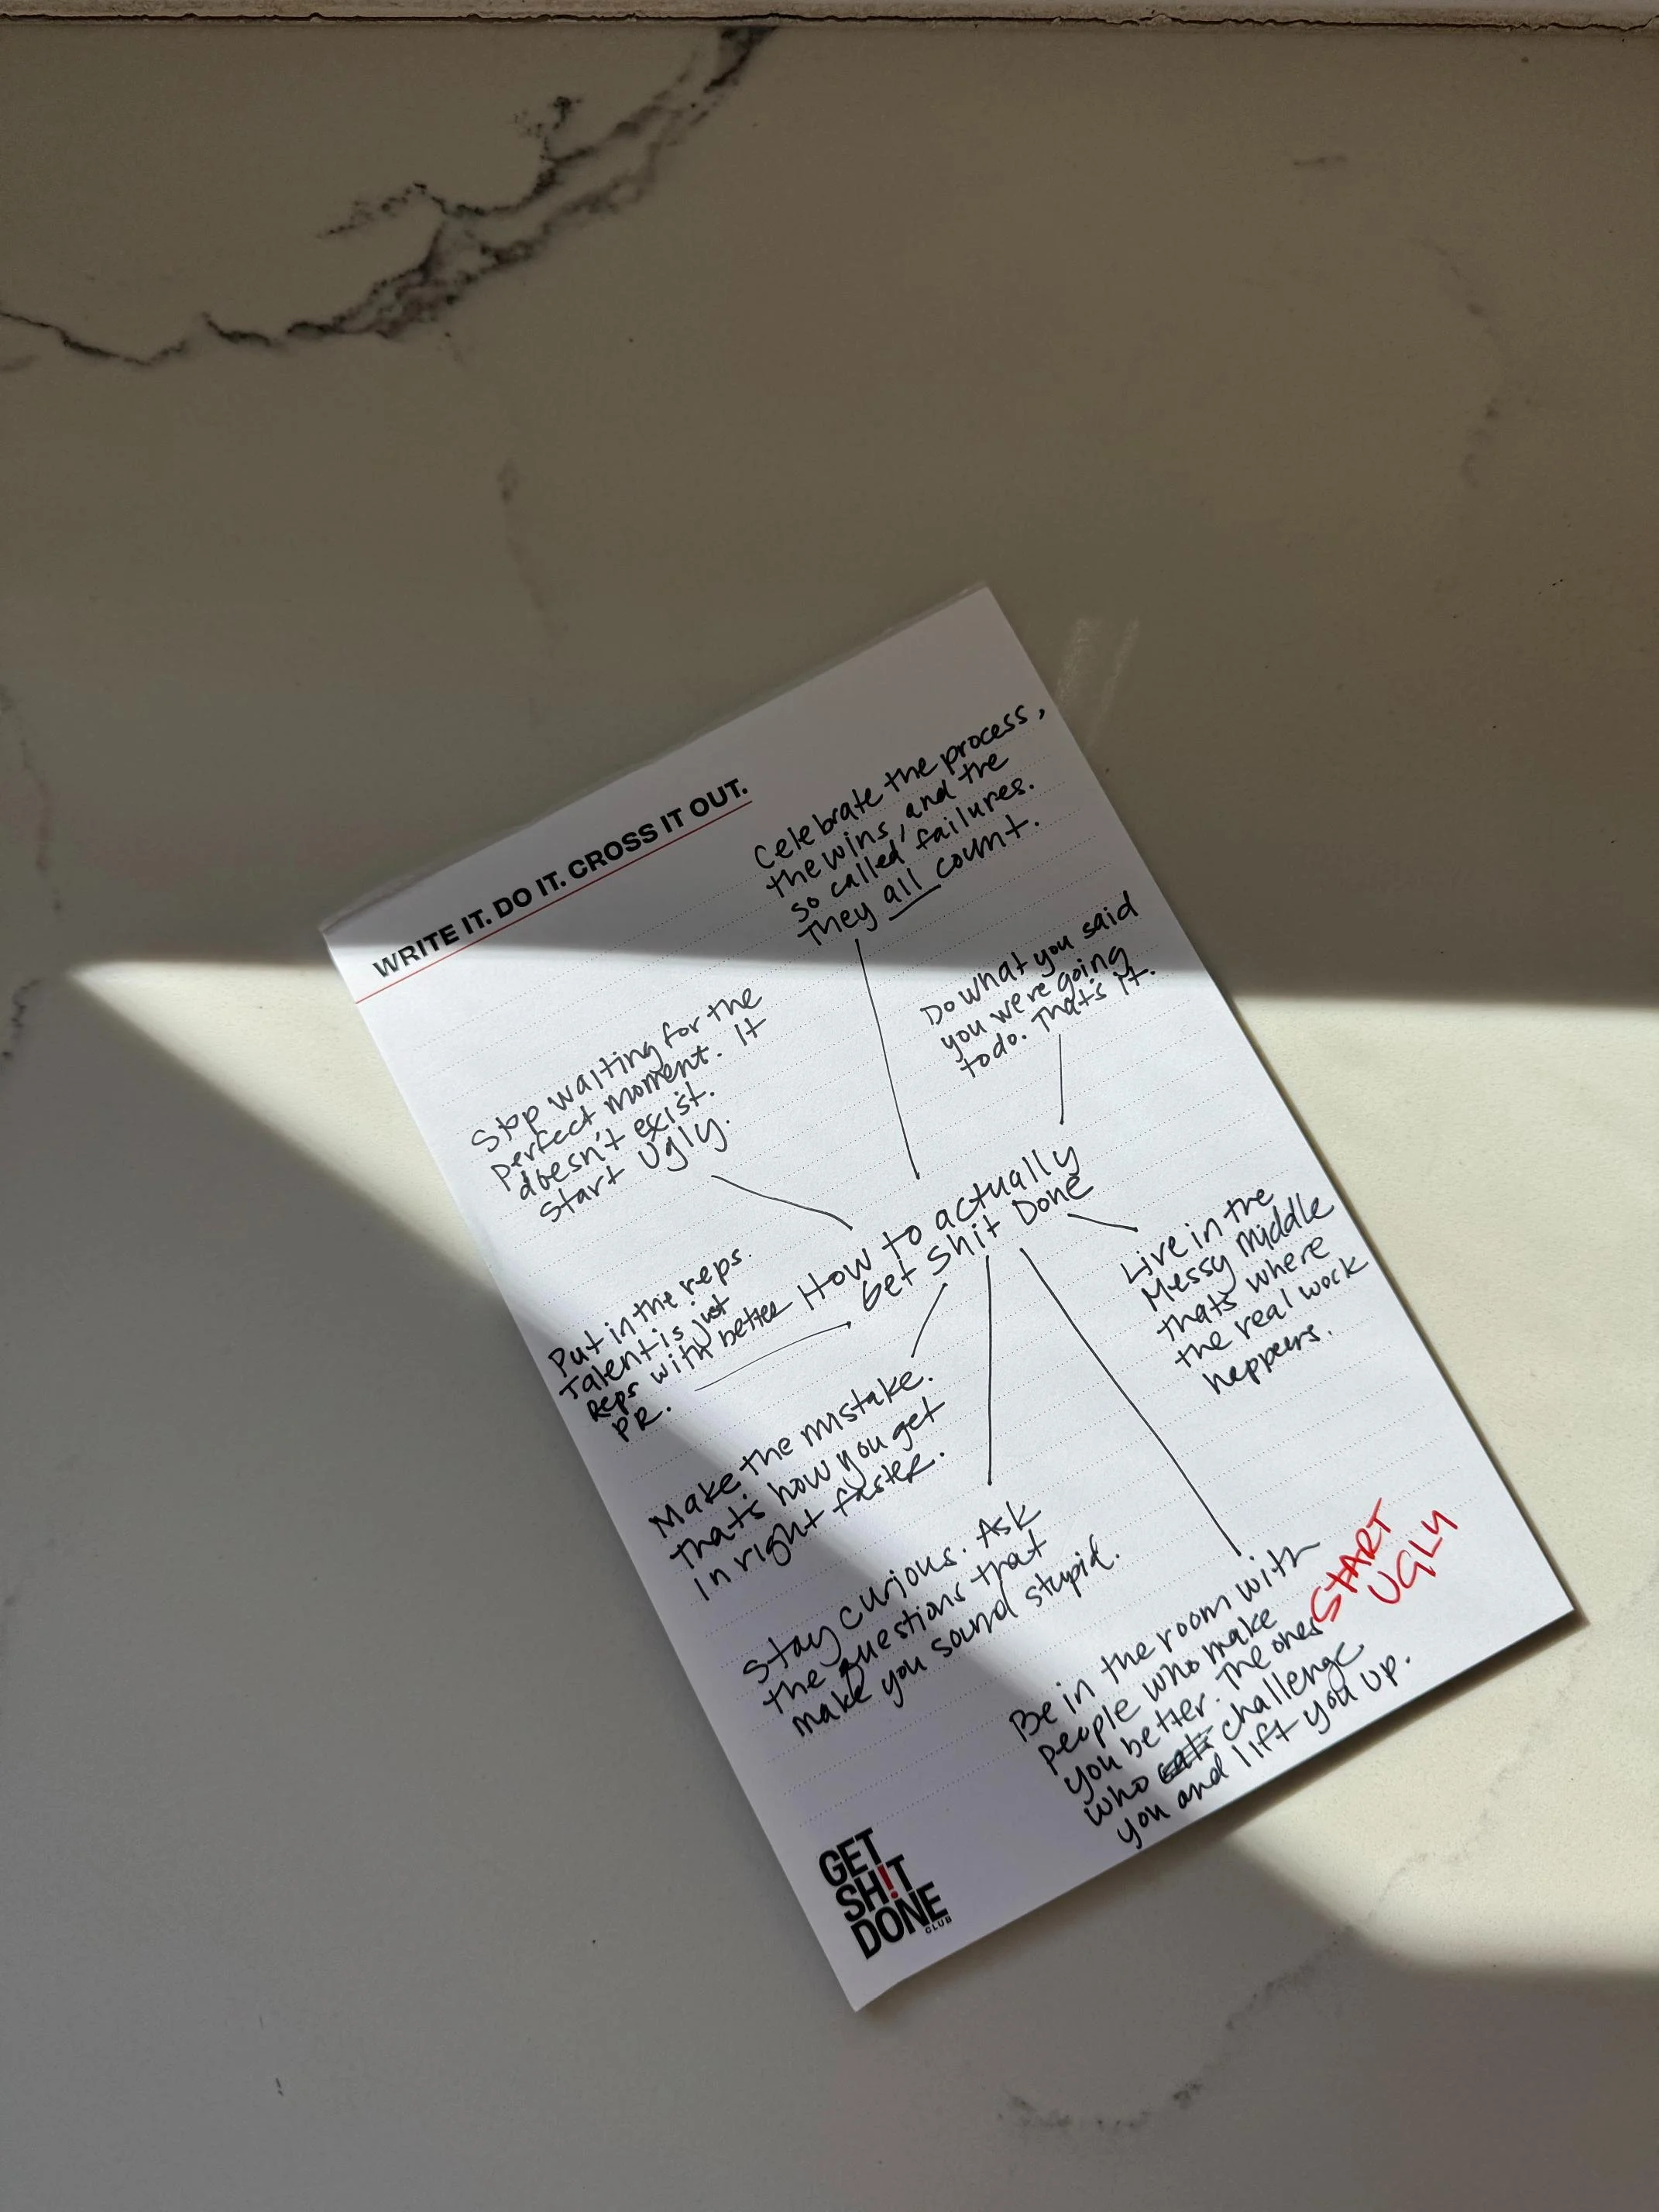 WRITE IT. DO IT. CROSS IT OUT.
Celebrate the process,
the wins, and the
so called failures.
They all count.
Do what you said
you were going
to do. That's it.
Stop waiting for the
perfect moment. It
doesn't exist.
Start Ugly.
How to actually
Get Shit Done
Live in the
Messy Middle
thats where
the real work
happens.
Put in the reps.
Talent is just
Reps with better
PR.
Make the mistake.
That's how you get
in right faster.
Stay curious. Ask
the questions that
make you sound stupid.
Be in the room with
people who make
you better. The ones
who challenge
you and lift you up.
START
UGLY
GET
SH!T
DONE
CLUB